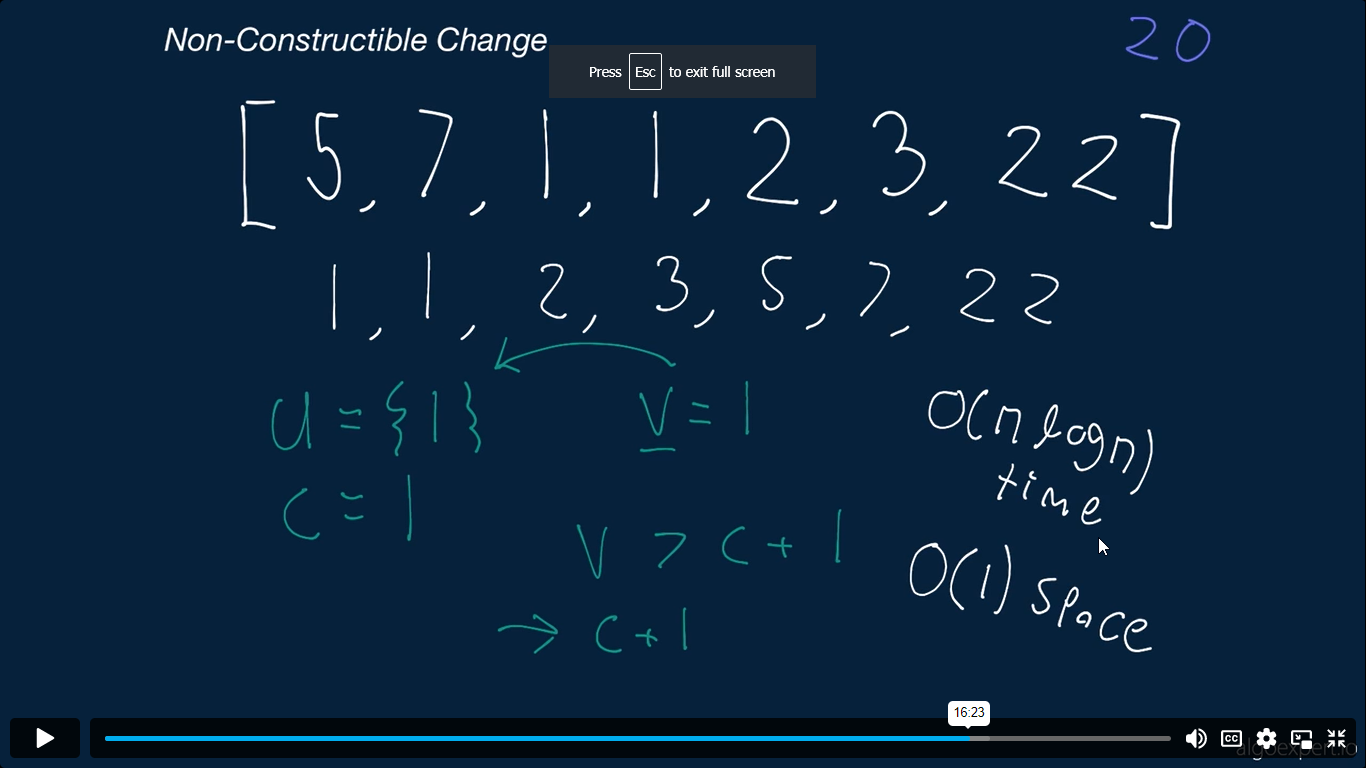 Non-Constructible Change
20
Press Esc to exit full screen
[5, 7, 1, 1, 2, 3, 22]
1, 1, 2, 3, 5, 7, 22
U = {1}
V = 1
C = 1
V > C + 1
→ C + 1
O(n log n)
time
O(1) space
16:23
CC
algoexpert.io